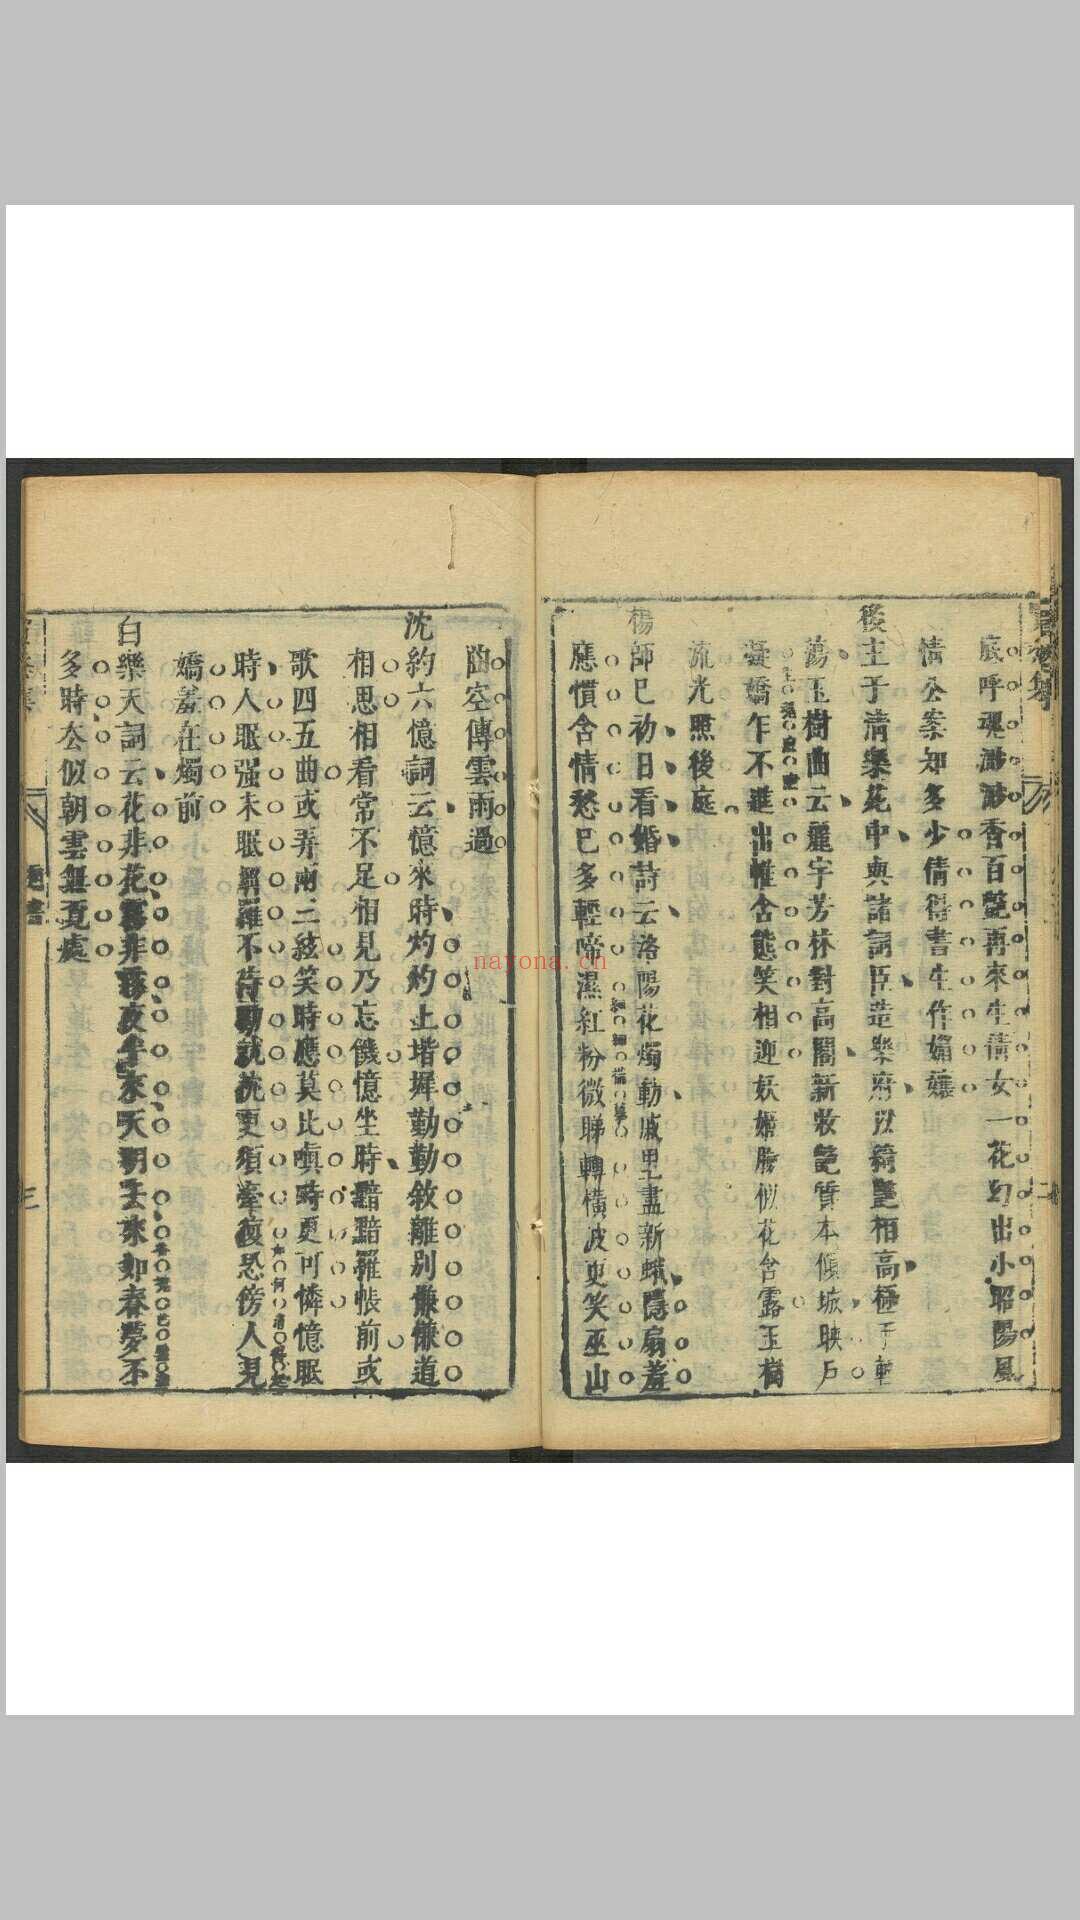 底呼魂渺渺香百艷再來生倩女一花幻出小昭陽風
情公案知多少倩得書生作媚孃
後主于清樂苑中與諸詞臣造樂府以綺艷相高極于輕
蕩玉樹曲云麗宇芳林對高閣新妝艷質本傾城映戶
凝嬌乍不進出帷含態笑相迎妖姬臉似花含露玉樹
流光照後庭
楊師巳初日看婚詩云洛陽花燭動戚里畫新蛾隱扇羞
應慣含情愁已多輕啼濕紅粉微睇轉橫波更笑巫山
陶空傳雲雨過
沈約六憶詞云憶來時灼灼上堦墀勤勤敘離別慊慊道
相思相看常不足相見乃忘饑憶坐時黯黯羅帳前或
歌四五曲或弄兩三絃笑時應莫比嗔時更可憐憶眠
時人眠强未眠解羅不待勸就枕更須牽復恐傍人見
嬌羞在燭前
白樂天詞云花非花霧非霧夜半來天明去來如春夢不
多時去似朝雲無覓處
三
nayona.cn